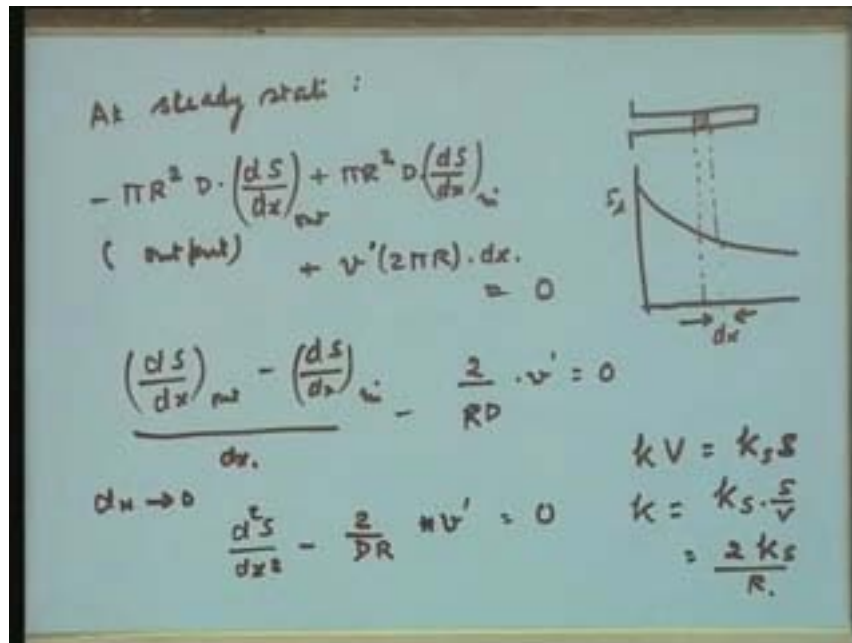 At steady state :
- πR² D · (dS/dx)out + πR² D (dS/dx)in
(output) + v'(2πR) · dx.
= 0
S,
dx
(dS/dx)out - (dS/dx)in / dx. - 2/RD · v' = 0
dx → 0
d²S/dx² - 2/DR * v' = 0
kV = ksS
k = ks · S/V
= 2 ks/R.